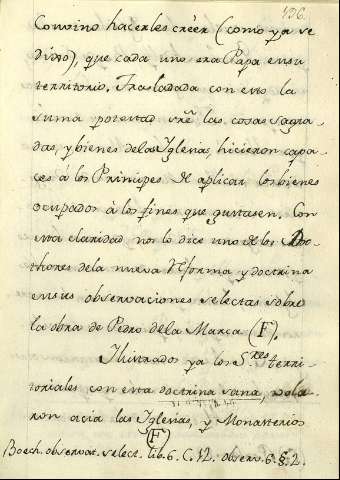 196.
Convino hacerles créer (como ya se
dixo), que cada uno era Papa en su
territorio. Trasladada con esto la
suma potestad sre las cosas Sagra-
das, y bienes de las Yglesias, hicieron capa-
ces á los Principes de aplicar los bienes
ocupados à los fines que gustasen. Con
esta claridad nos lo dice uno de los Do-
thores de la nueva reforma y doctrina
en sus observaciones selectas sobre
la obra de Pedro de la Marca (F).
Ilustrados ya los S.res terri-
toriales con esta doctrina sana, vola-
ron acia las Iglesias, y Monasterios
(F)
Boech. observat. select. lib. 6. C. 12. observ. 6. §. 2.